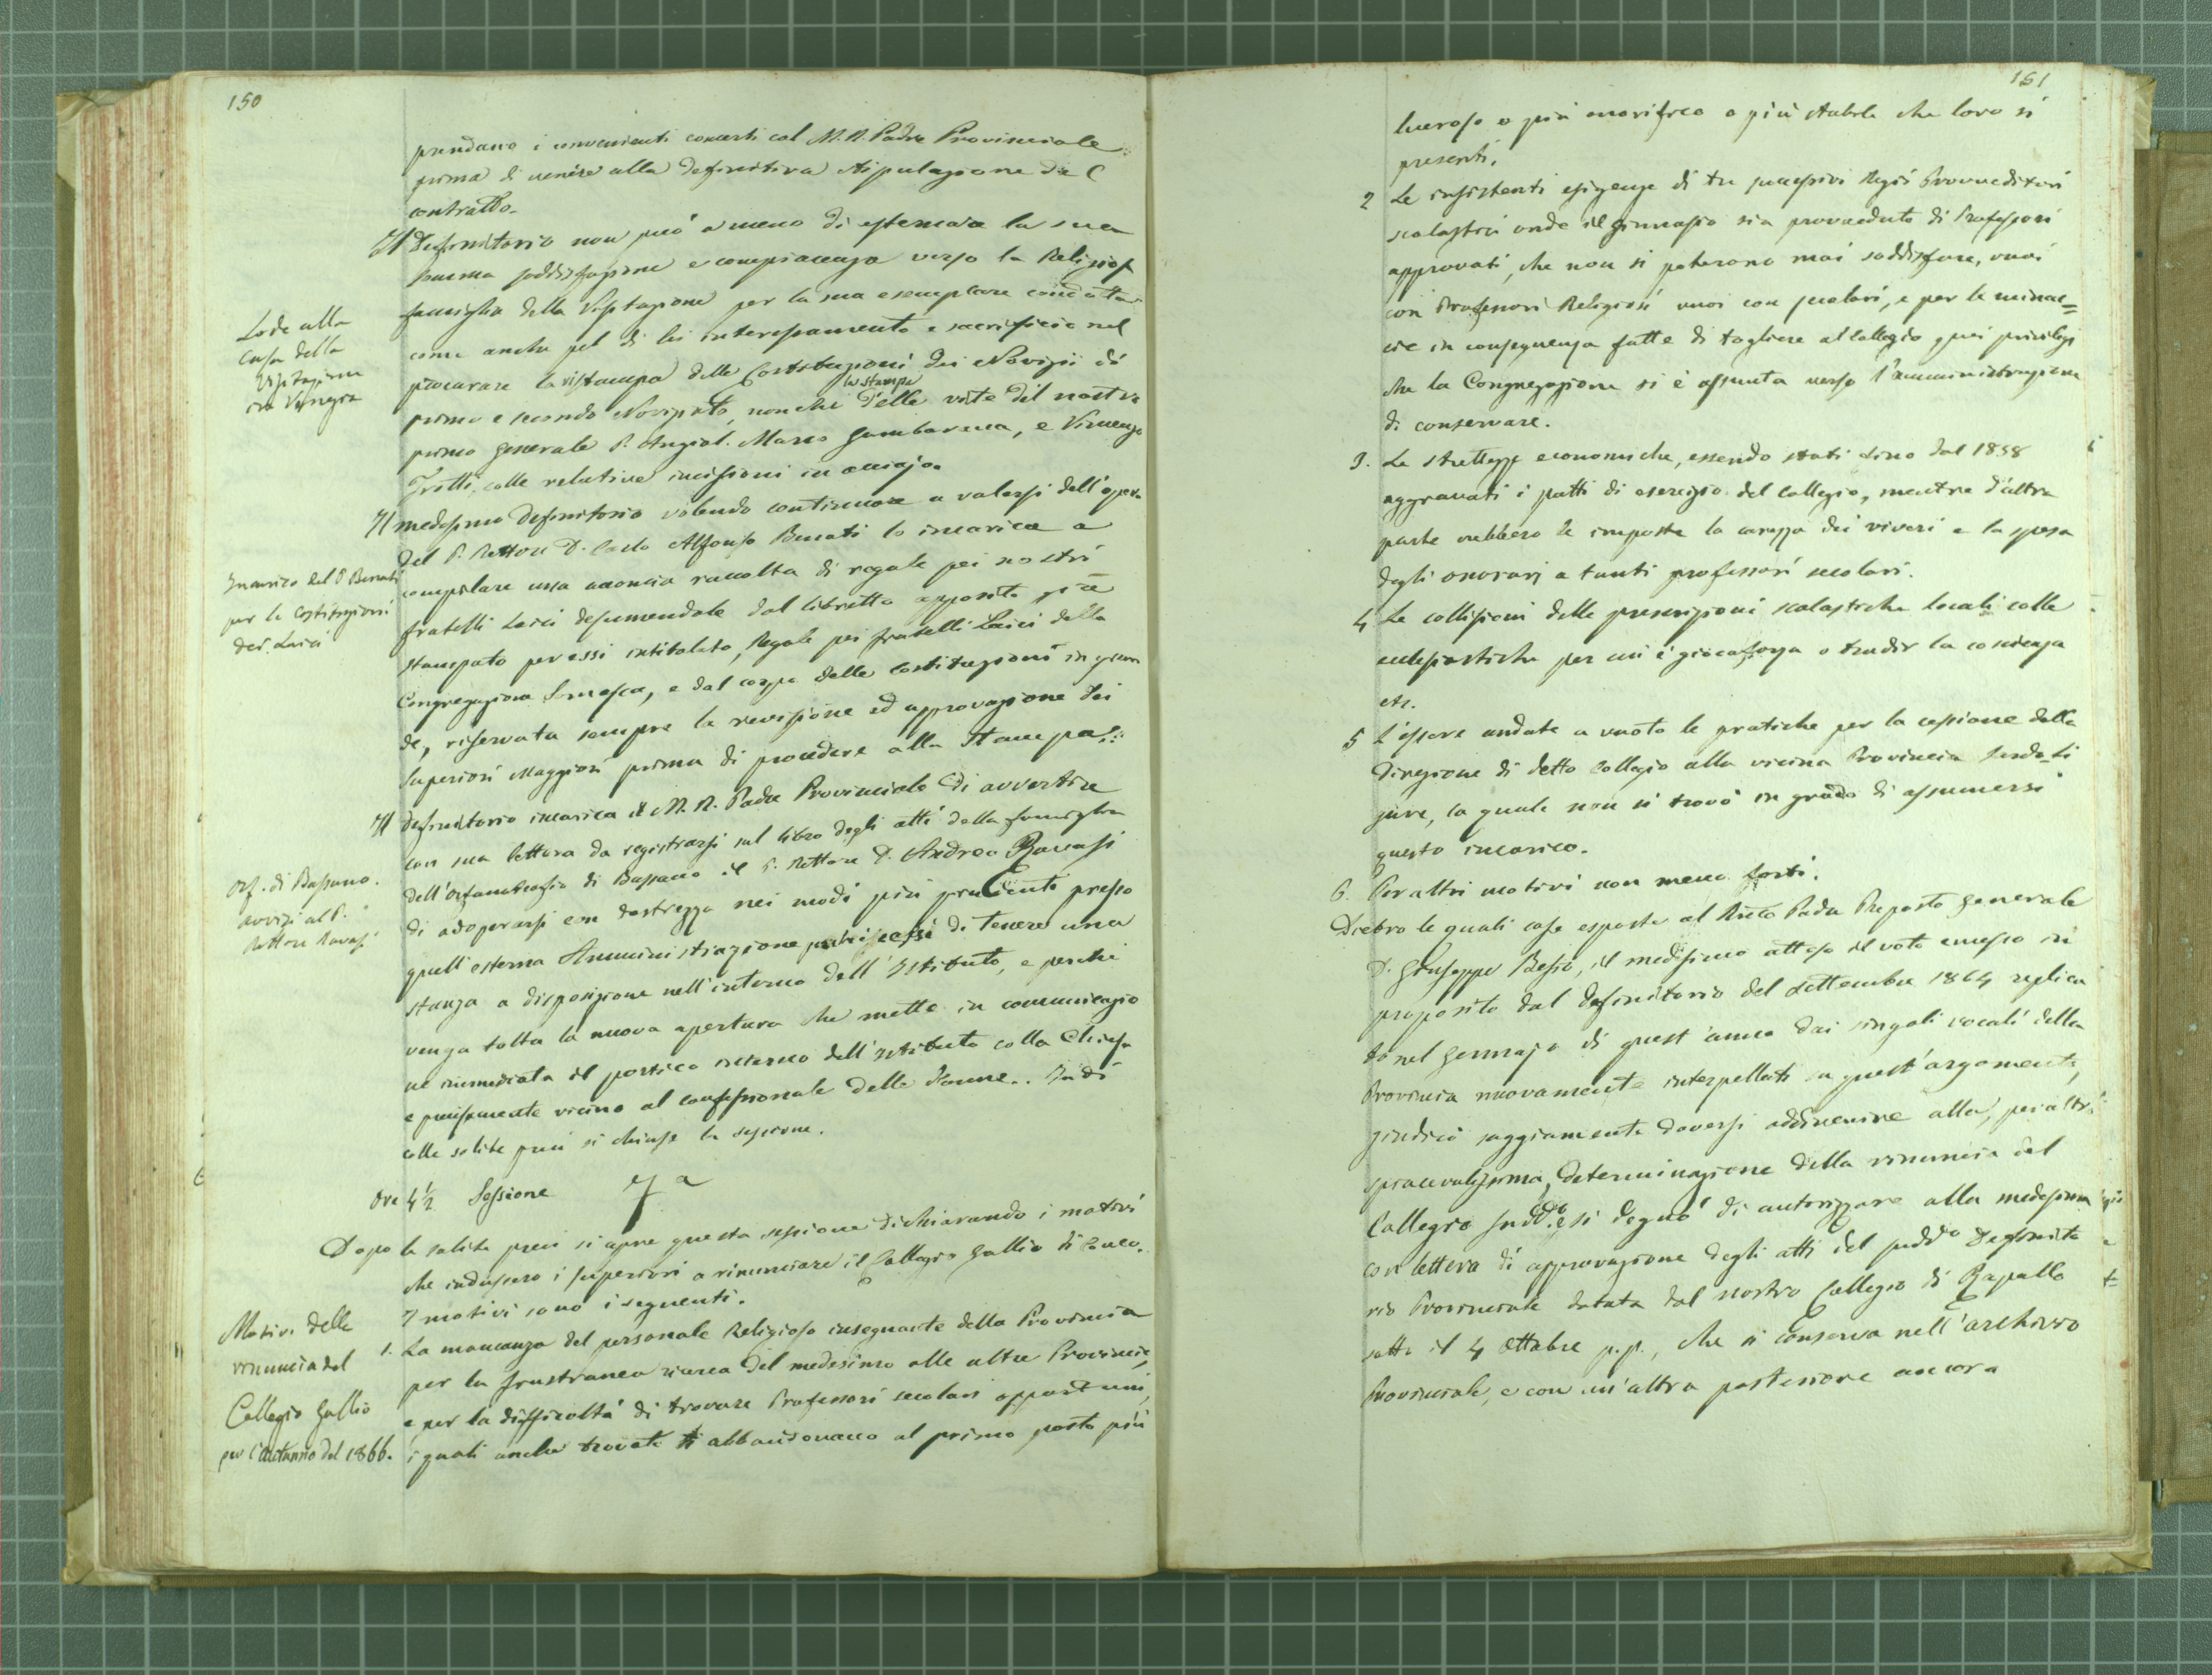 150
prendano i convenienti concerti col M. R. Padre Provinciale
prima di venire alla definitiva stipulazione del
contratto.
Il Definitorio non può a meno di esternare la sua
somma soddisfazione e compiacenza verso la Religiosa
Lode alla
casa della
Visitazione
in Venezia
famiglia della Visitazione per la sua esemplare condotta
come anche pel di lei interessamento e sacrificio nel
procurare la ristampa delle Costituzioni dei Novizii di
primo e secondo Novizïato, nonchè la stampa delle vite del nostro
primo generale P. Angiol. Marco Gambarana, e Vincenzo
Trotti, colle relative incisioni in acciajo.
Il medesimo Definitorio volendo continuare a valersi dell'opera
Incarico del P. Benati
per le Costituzioni
dei Laici
del P. Rettore D. Carlo Alfonso Benati lo incarica a
compilare una acconcia raccolta di regole pei nostri
fratelli Laici desumendole dal libretto apposito già
stampato per essi intitolato, Regole pei fratelli Laici della
Congregazione Somasca, e dal corpo delle Costituzioni in gran
de, riservata sempre la revisione ed approvazione dei
Superiori Maggiori prima di procedere alla stampa.
Il definitorio incarica il M. R. Padre Provinciale di avvertire
Orf. di Bassano.
avvisi al P.
Rettore Ravasi
con sua lettera da registrarsi sul libro degli atti della famiglia
dell'Orfanotrofio di Bassano il P. Rettore D. Andrea Ravasi
di adoperarsi con destrezza nei modi più prudenti presso
quell'esterna Amministrazione di tenere una
stanza a disposizione nell'interno dell'Istituto, e perchè
venga tolta la nuova apertura che mette in comunicazio
ne immediata il portico interno dell'Istituto colla Chiesa
e precisamente vicino al confessionale delle donne.. Indi
colle solite preci si chiuse la sessione.
Ore 4 1/2 Sessione 7a
Dopo le solite preci si apre questa sessione dichiarando i motivi
che indussero i superiori a rinunciare il Collegio Gallio di Como.
I motivi sono i seguenti.
Motivi delle
rinuncia del
Collegio Gallio
per l'autunno del 1866.
1. La mancanza del personale Religioso insegnante della Provincia
per la frustranea ricerca del medesimo alle altre Provincie,
e per la difficoltà di trovare Professori secolari opportuni,
i quali anche trovati ti abbandonano al primo posto più
151
lucroso o più onorifico o più stabile che loro si
presenti.
2 Le insistenti esigenze di tre successivi Regii Provveditori
scolastici onde il ginnasio sia provveduto di Professori
approvati, che non si poterono mai soddisfare, vuoi
con Professori Religiosi vuoi con secolari, e per le minac=
cie in conseguenza fatte di togliere al Collegio quei privilegi
che la Congregazione si è assunta verso l'amministrazione
di conservare.
3. Le strettezze economiche, essendo stati sino dal 1858
aggravati i patti di esercizio del Collegio, mentre d'altra
parte crebbero le imposte la carezza dei viveri e la spesa
degli onorarj a tanti professori secolari.
4 Le collisioni delle prescrizioni scolastiche locali colle
ecclesiastiche per cui è giocoforza o tradir la coscienza
etc.
5 L'essere andate a vuoto le pratiche per la cessione della
direzione di detto Collegio alla vicina Provincia Sardo-Li
gure, la quale non si trovò in grado di assumersi
questo incarico.
6. Per altri motivi non meno forti.
Dietro le quali cose esposte al Rmo Padre Preposto Generale
D. Giuseppe Besio, il medesimo atteso il voto emesso in
proposito dal Definitorio del Settembre 1864 replica
to nel Gennajo di quest'anno dai singoli vocali della
Provincia nuovamente interpellati su quest'argomento,
giudicò saggiamente doversi addivenire alla, peraltro
spiacevolissima, determinazione della rinuncia del
Collegio sudd.o e si degnò di autorizzare alla medesima
con lettera di approvazione degli atti del suddo Definito
rio Provinciale datata dal nostro Collegio di Rapallo
sotto il 4 Ottobre p.p., che si conserva nell'archivio
Provinciale, e con un'altra posteriore ancora